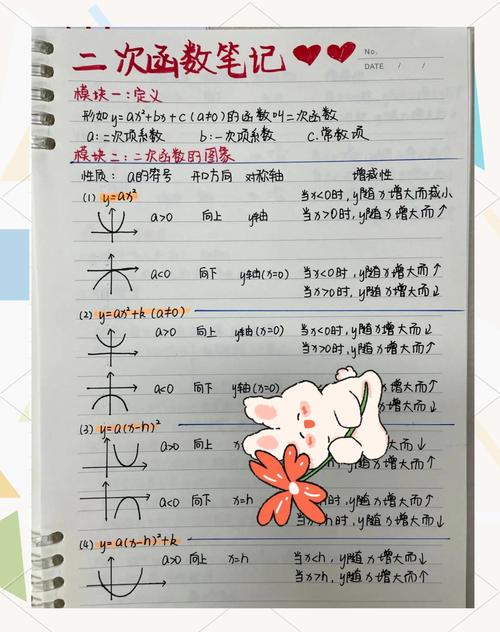 二次函数笔记
No.
DATE / /
模块一:定义
形如y=ax²+bx+c(a≠0)的函数叫二次函数
a:二次项系数 b:一次项系数 c.常数项
模块二:二次函数的图象
性质: a的符号 开口方向 对称轴 增减性
(1) y=ax² 当x<0时,y随x增大而减小
a>0 向上 y轴 当x>0时,y随x增大而↑
a<0 向下 y轴(x=0) 当x<0时,y随x增大而↑
当x>0时,y随x增大而↓
(2) y=ax²+k (a≠0)
a>0 向上 y轴(x=0) 当x<0时,y随x增大而↓
当x>0时,y随x增大而↑
a<0 向下 y轴(x=0) 增大而↑
增大而↓
(3) y=a(x-h)²
a>0 向上 增大而↓
随x增大而↑
a<0 向下 x=h 时,y随x增大而↑
时,y随x增大而↓
(4) y=a(x-h)²+k
a>0 向上 x=h 当x<h,y随x增大而↓
当x>h,y随x增大而↑